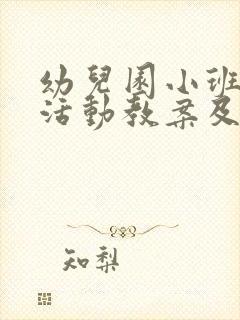 幼兒園小班
活動教案及
知梨